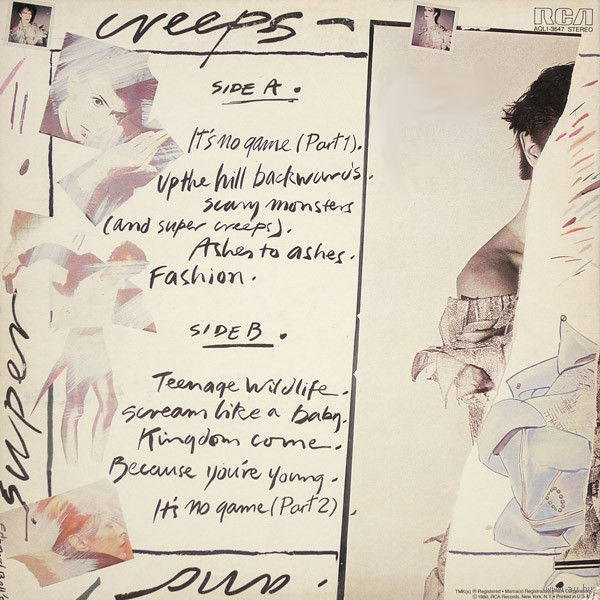 creeps -
RCA
AQL1-3647 STEREO
SIDE A.
It's no game (Part 1).
up the hill backwards.
scary monsters
(and super creeps).
Ashes to ashes.
Fashion.
SIDE B.
Teenage Wildlife.
scream like a baby.
Kingdom come.
Because you're young.
It's no game (Part 2).
super
and.
TMK(s) ® Registered • Marca(s) Registrada(s) RCA Corporation
© 1980, RCA Records, New York, N.Y. • Printed in U.S.A.